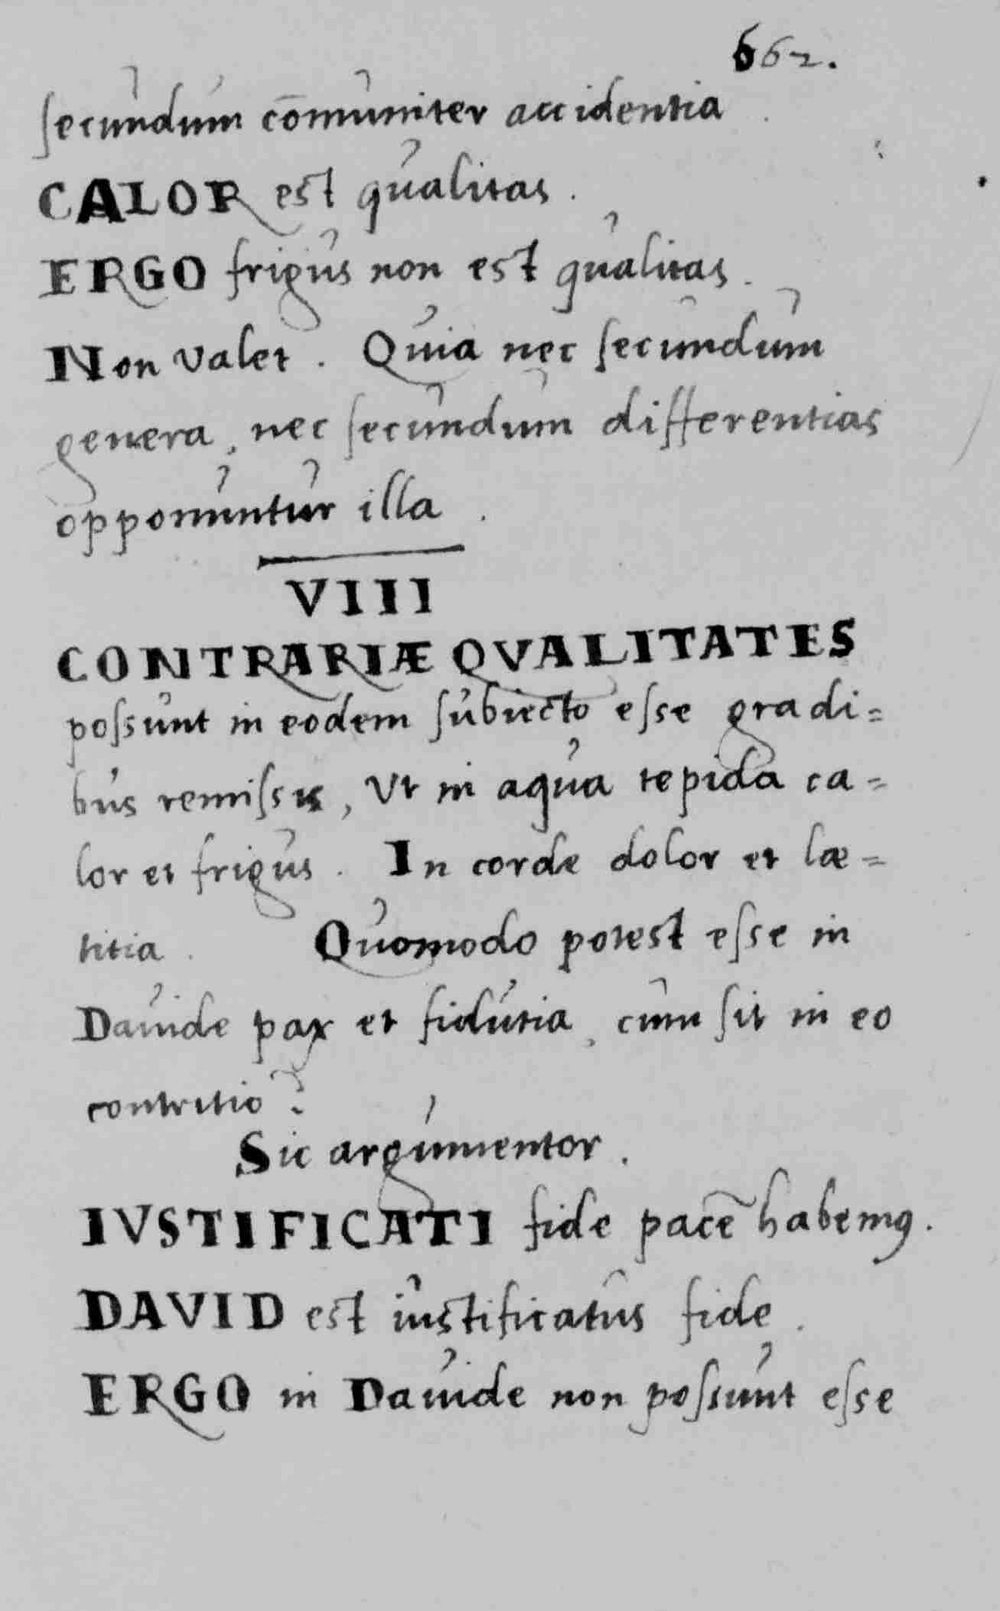 662.
ſecundum cōmuniter accidentia
CALOR est qualitas.
ERGO frigus non est qualitas.
Non valet. Quia nec ſecundum
genera, nec ſecundum differentias
opponuntur illa.
VIII
CONTRARIÆ QVALITATES
poſsunt in eodem ſubiecto eſse gradi=
bus remiſsis, Vt in aqua tepida ca=
lor et frigus. In corde dolor et læ=
titia. Quomodo potest eſse in
Dauide pax et fidutia, cum ſit in eo
contritio?
Sic argumentor.
IVSTIFICATI fide pacē habemꝰ.
DAVID est iustificatus fide.
ERGO in Dauide non poſsunt eſse